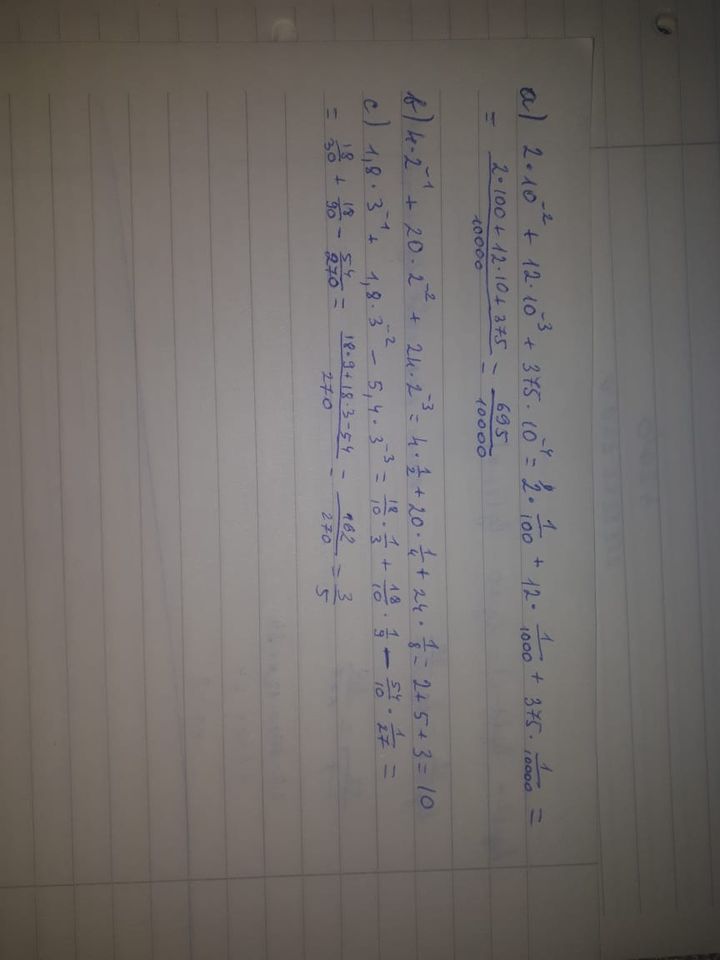 a) 2·10⁻² + 12·10⁻³ + 375·10⁻⁴ = 2·1/100 + 12·1/1000 + 375·1/10000 =
= (2·100+12·10+375)/10000 = 695/10000
b) 4·2⁻¹ + 20·2⁻² + 24·2⁻³ = 4·1/2 + 20·1/4 + 24·1/8 = 2+5+3=10
c) 1,8·3⁻¹ + 1,8·3⁻² - 5,4·3⁻³ = 18/10·1/3 + 18/10·1/9 - 54/10·1/27 =
= 18/30 + 18/90 - 54/270 = (18·9+18·3-54)/270 = 162/270 = 3/5